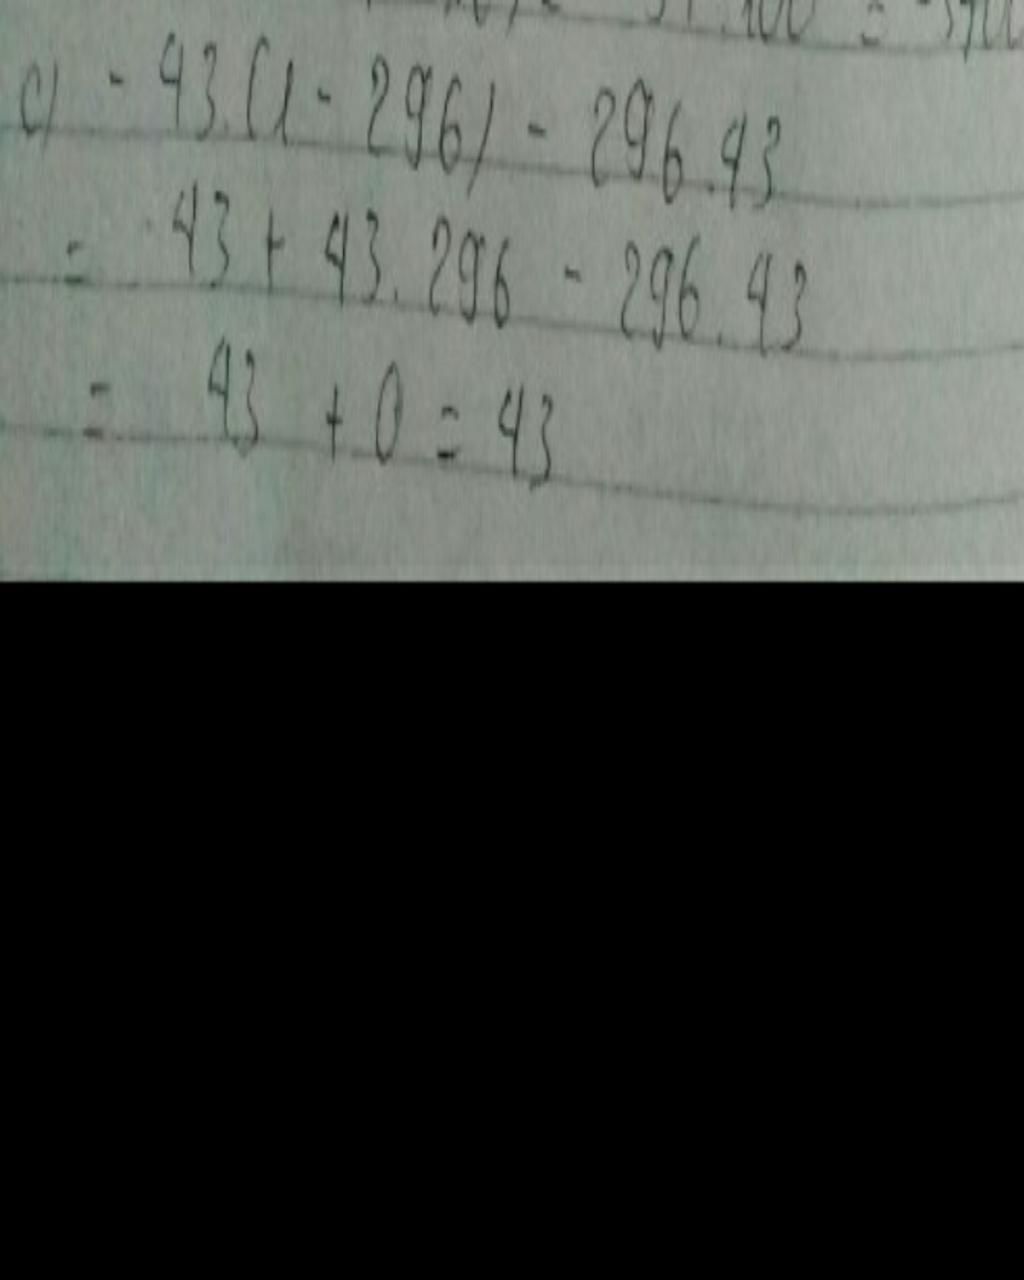 = -3700
c) - 43.(1 - 296) - 296.43
= 43 + 43.296 - 296.43
= 43 + 0 = 43